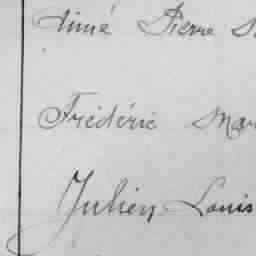 Aimé Pierre
Frédéric Mar
Julien Louis